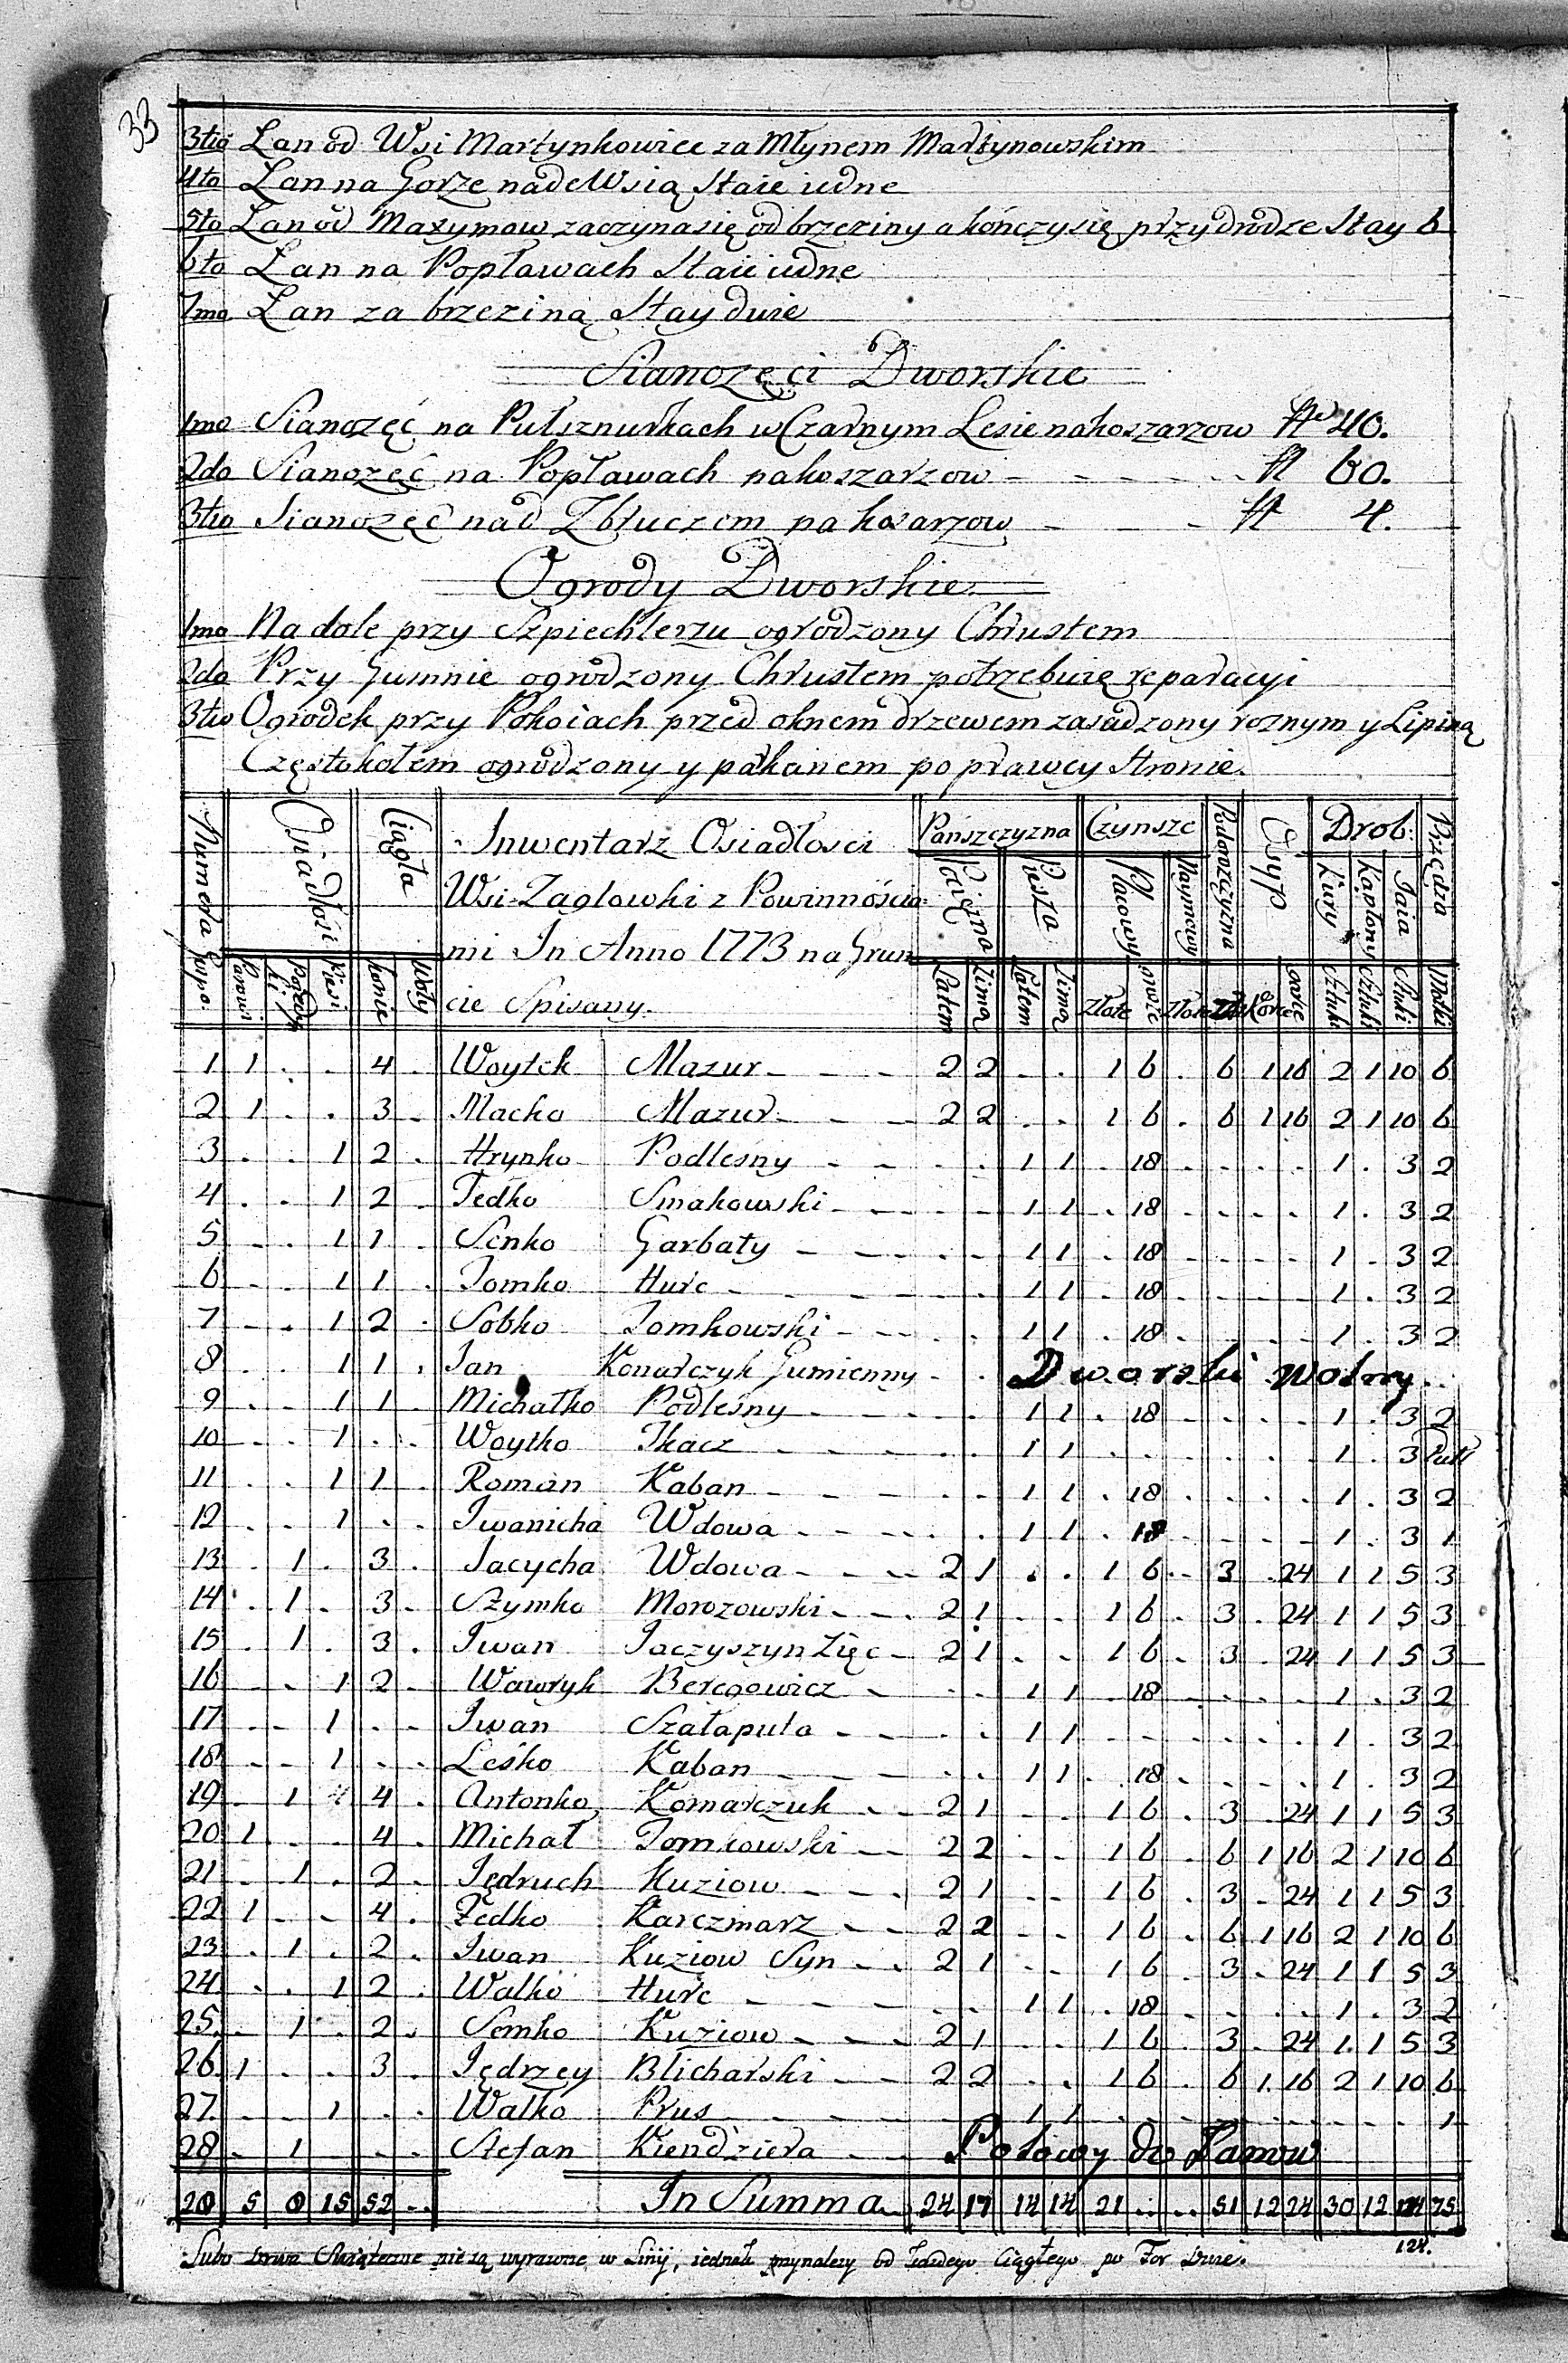 33
3tio Łan od Wsi Martynkowiec za Młynem Martynowskim
4to Łan na Gorze nade Wsią Staie iedne
5to Łan od Maxymow zaczyna się od brzeziny a kończy się przy drodze Stay 6
6to Łan na Popławach Staie iedne
7mo Łan za brzeziną Stay dwie
Sianozęci Dworskie
1mo Sianozęć na Pulsznurkach w Czarnym Lesie na koszarzow N 40.
2do Sianozęć na Popławach na koszarzow - - - - - N 60.
3tio Sianozęć nad Zbruczem na kosarzow - - - N 4.
Ogrody Dworskie
1mo Na dole przy Szpiechlerzu ogrodzony Chrustem
2do Przy Gumnie ogrodzony Chrustem potrzebuie reparacyi
3tio Ogrodek przy Pokoiach przed oknem drzewem zasadzony roznym y Lipiną
Częstokołem ogrodzony y parkanem po prawey Stronie.
Numera Grupo. Osiadłości Ciągła Inwentarz Osiadłosci Panszczyzna Czynsze Podorszczyzna Osyp Drob: Przędza
Wsi Zagłowki z Powinnościa= Ciągna Piesza Placowy Kury Kapłony Iaia
mi In Anno 1773 na Grun
Parowi Piesi Konie Woły cie Spisany. Latem Zimą Latem Zimą Złote grosze Złote Korce Sztuki Sztuki Sztuki Motki
1 1 . . 4 . Woytek Mazur - - - 2 2 . . 1 6 . 6 1 16 2 1 10 6
2 1 . . 3 . Macko Mazur - - - 2 2 . . 1 6 . 6 1 16 2 1 10 6
3 . . 1 2 . Hrynko Podlesny - - - . . 1 1 . 18 . . . . 1 . 3 2
4 . . 1 2 . Fedko Smakowski - - - . . 1 1 . 18 . . . . 1 . 3 2
5 . . 1 1 . Senko Garbaty - - - . . 1 1 . 18 . . . . 1 . 3 2
6 . . 1 1 . Tomko Hurc - - - . . 1 1 . 18 . . . . 1 . 3 2
7 . . 1 2 . Sobko Tomkowski - - - . . 1 1 . 18 . . . . 1 . 3 2
8 . . 1 1 . Ian Konarczyk Gumienny - . . Dworski wolny . .
9 . . 1 1 . Michałko Podleśny - - - . . 1 1 . 18 . . . . 1 . 3 2
10 . . 1 . . Woytko Tkacz - - - . . 1 1 . . . . . . 1 . 3
11 . . 1 1 . Roman Kaban - - - . . 1 1 . 18 . . . . 1 . 3 2
12 . . 1 . . Iwanicha Wdowa - - - . . 1 1 . 18 . . . . 1 . 3 1
13 . 1 . 3 . Iacycha Wdowa - - - 2 1 . . 1 6 . 3 . 24 1 1 5 3
14 . 1 . 3 . Szymko Morozowski - - 2 1 . . 1 6 . 3 . 24 1 1 5 3
15 . 1 . 3 . Iwan Iaczyszyn Zięc - 2 1 . . 1 6 . 3 . 24 1 1 5 3
16 . . 1 2 . Wawryk Beregowicz - . . 1 1 . 18 . . . . 1 . 3 2
17 . . 1 . . Iwan Szałaputa - - - . . 1 1 . . . . . . 1 . 3 2
18 . . 1 . . Leśko Kaban - - - . . 1 1 . 18 . . . . 1 . 3 2
19 . 1 . 4 . Antonko Komarczuk - - 2 1 . . 1 6 . 3 . 24 1 1 5 3
20 1 . . 4 . Michał Tomkowski - - 2 2 . . 1 6 . 6 1 16 2 1 10 6
21 . 1 . 2 . Iędruch Kuziow - - - 2 1 . . 1 6 . 3 . 24 1 1 5 3
22 1 . . 4 . Fedko Karczmarz - - 2 2 . . 1 6 . 6 1 16 2 1 10 6
23 . 1 . 2 . Iwan Kuziow Syn - - 2 1 . . 1 6 . 3 . 24 1 1 5 3
24 . . 1 2 . Walko Hurc - - - . . 1 1 . 18 . . . . 1 . 3 2
25 . 1 . 2 . Semko Kuziow - - - 2 1 . . 1 6 . 3 . 24 1 1 5 3
26 1 . . 3 . Iędrzey Blicharski - - 2 2 . . 1 6 . 6 1 16 2 1 10 6
27 . . 1 . . Walko Prus - - - . . 1 1 . . . . . . . . . 1
28 . 1 . . . Stefan Kiendziera - - Polowy do Łanow
28 5 8 15 52 . . In Summa 24 17 14 14 21 . . . . 51 12 24 30 12 124 75
124.
Lubo Drwa Swiąteczne nie są wyrazone w Linij, iednak przynalezy od kazdego Ciągłego po For Dwie.